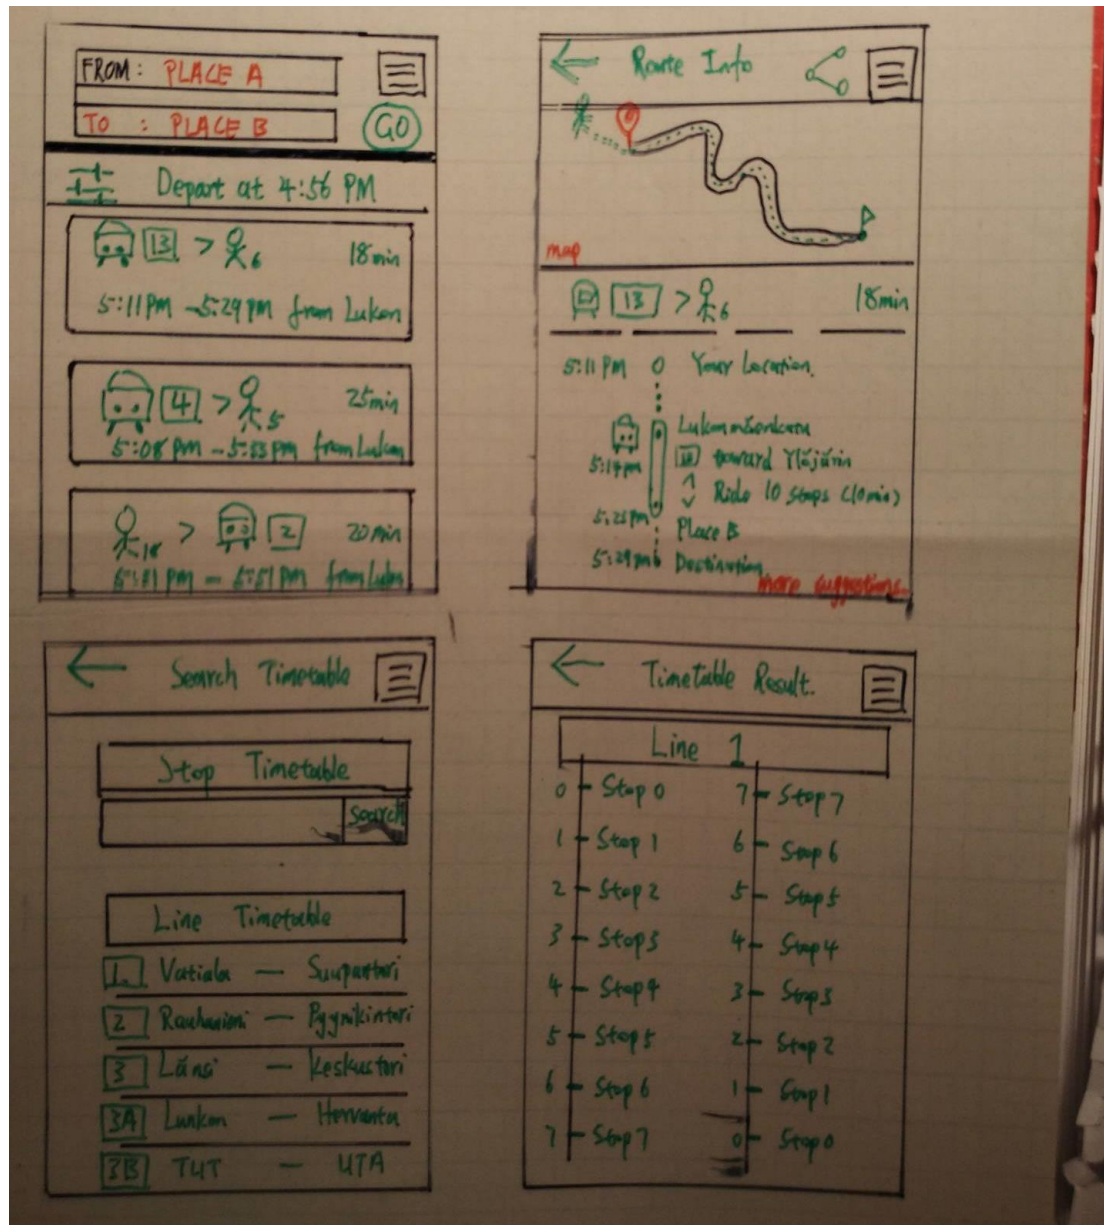 FROM: PLACE A
TO : PLACE B
GO
Depart at 4:56 PM
13 > 6 18min
5:11PM - 5:29PM from Lukon
4 > 5 25min
5:08 PM - 5:33PM from Lukon
18 > 2 20min
PM - PM from
Route Info
map
13 > 6 18min
5:11 PM Your Location.
Lukonmäenkatu
5:14pm toward Ylöjärvi
Ride 10 stops (10min)
5:25pm Place B
5:29pm Destination
more suggestions.
Search Timetable
Stop Timetable
Search
Line Timetable
1. Vatiala — Suupantori
2 Rauhaniemi — Pyynikintori
3 Länsi — Keskustori
3A Lunkon — Hervanta
3B TUT — UTA
Timetable Result.
Line 1
0 Stop 0 7 Stop 7
1 Stop 1 6 Stop 6
2 Stop 2 5 Stop 5
3 Stop 3 4 Stop 4
4 Stop 4 3 Stop 3
5 Stop 5 2 Stop 2
6 Stop 6 1 Stop 1
7 Stop 7 0 Stop 0